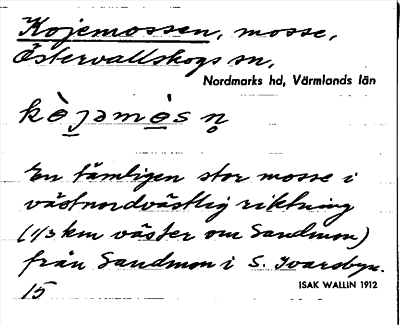 Kojemossen, mosse,
Östervallskogs sn,
Nordmarks hd, Värmlands län
kòjəmòsn̥
En tämligen stor mosse i
västnordvästlig riktning
(1/3 km väster om Sandmon)
från Sandmon i S. Ivarsbyn.
15
ISAK WALLIN 1912